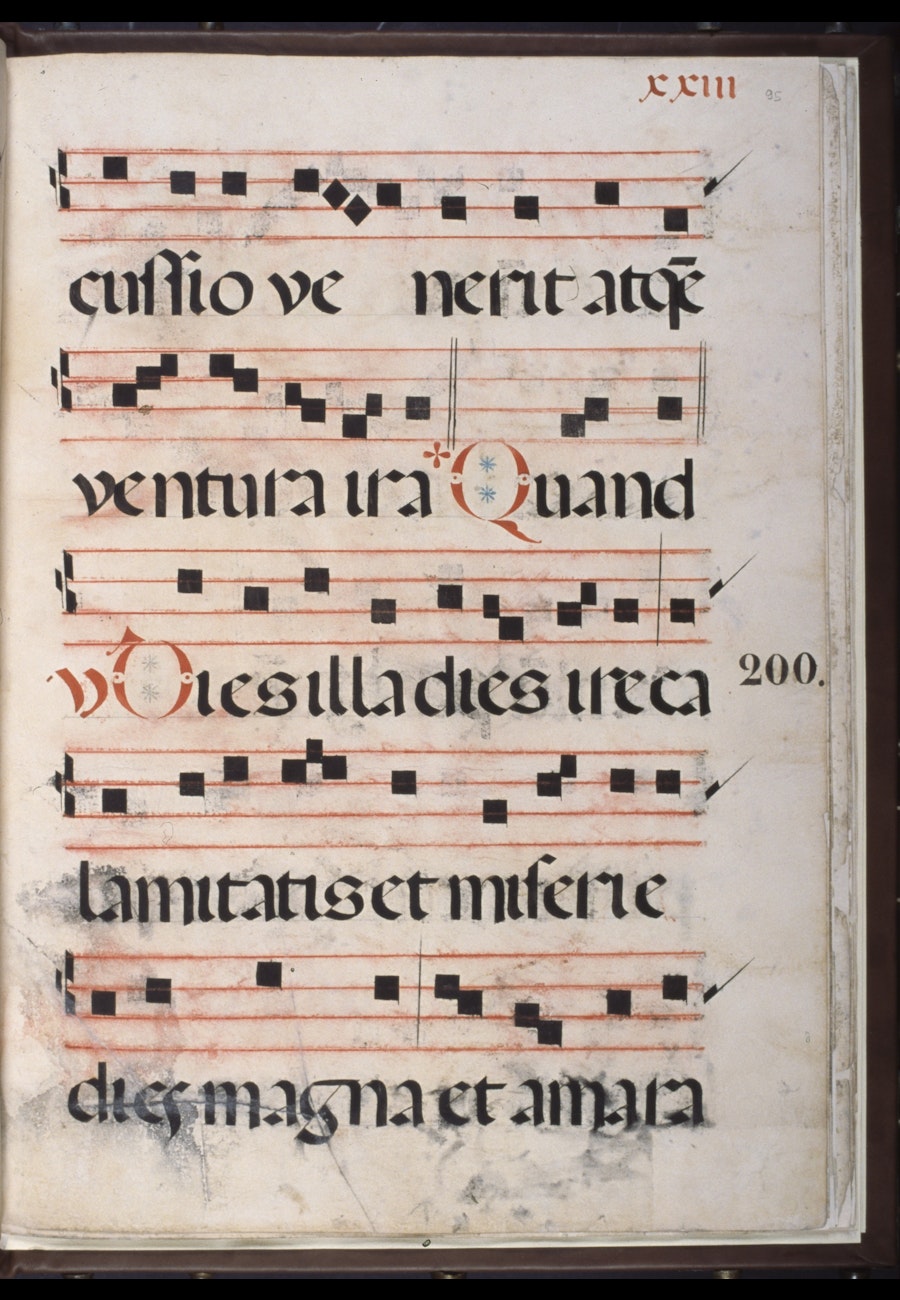 xxiii 95
cuſſio ve nerit atqꝫ̄
ventura ira Quand
V̓ Dies illa dies ire ca
200.
lamitatis et miſerie
dies magna et amara